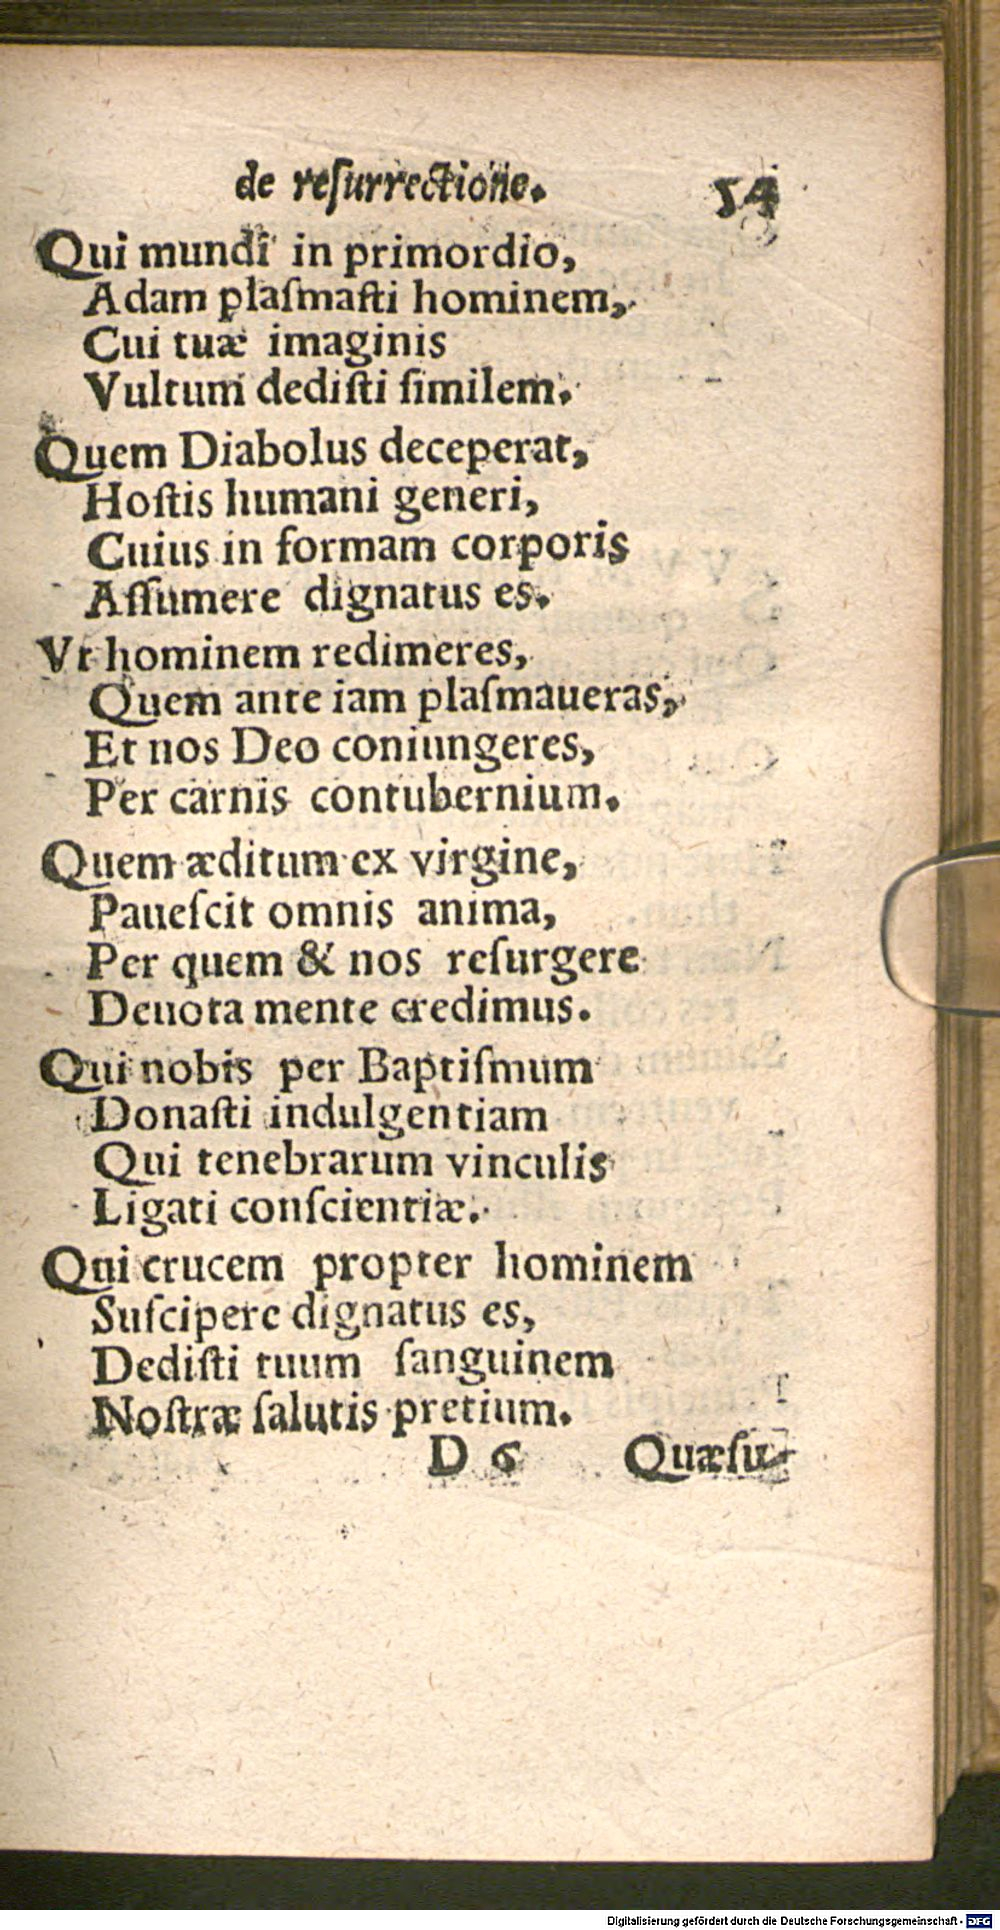 de reſurrectione. 54
Qui mundi in primordio,
Adam plaſmaſti hominem,
Cui tuæ imaginis
Vultum dediſti ſimilem.
Quem Diabolus deceperat,
Hoſtis humani generi,
Cuius in formam corporis
Aſſumere dignatus es.
Vt hominem redimeres,
Quem ante iam plaſmaueras,
Et nos Deo coniungeres,
Per carnis contubernium.
Quem æditum ex virgine,
Paueſcit omnis anima,
Per quem & nos reſurgere
Deuota mente credimus.
Qui nobis per Baptiſmum
Donaſti indulgentiam
Qui tenebrarum vinculis
Ligati conſcientiæ.
Qui crucem propter hominem
Suſcipere dignatus es,
Dediſti tuum ſanguinem
Noſtræ ſalutis pretium.
D 6 Quæſu-
Digitalisierung gefördert durch die Deutsche Forschungsgemeinschaft - DFG